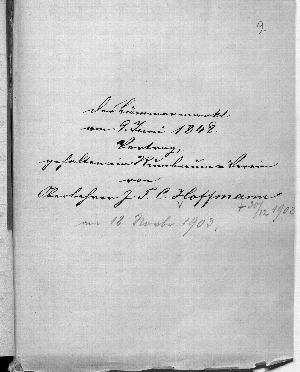 9.
Der Lämmermarkt
am 9. Juni 1848.
Vortrag,
gehalten im Museums Verein
von
Oberlehrer J. F. C. Hoffmann
am 18 Novbr 1903.
† 30/12 1903